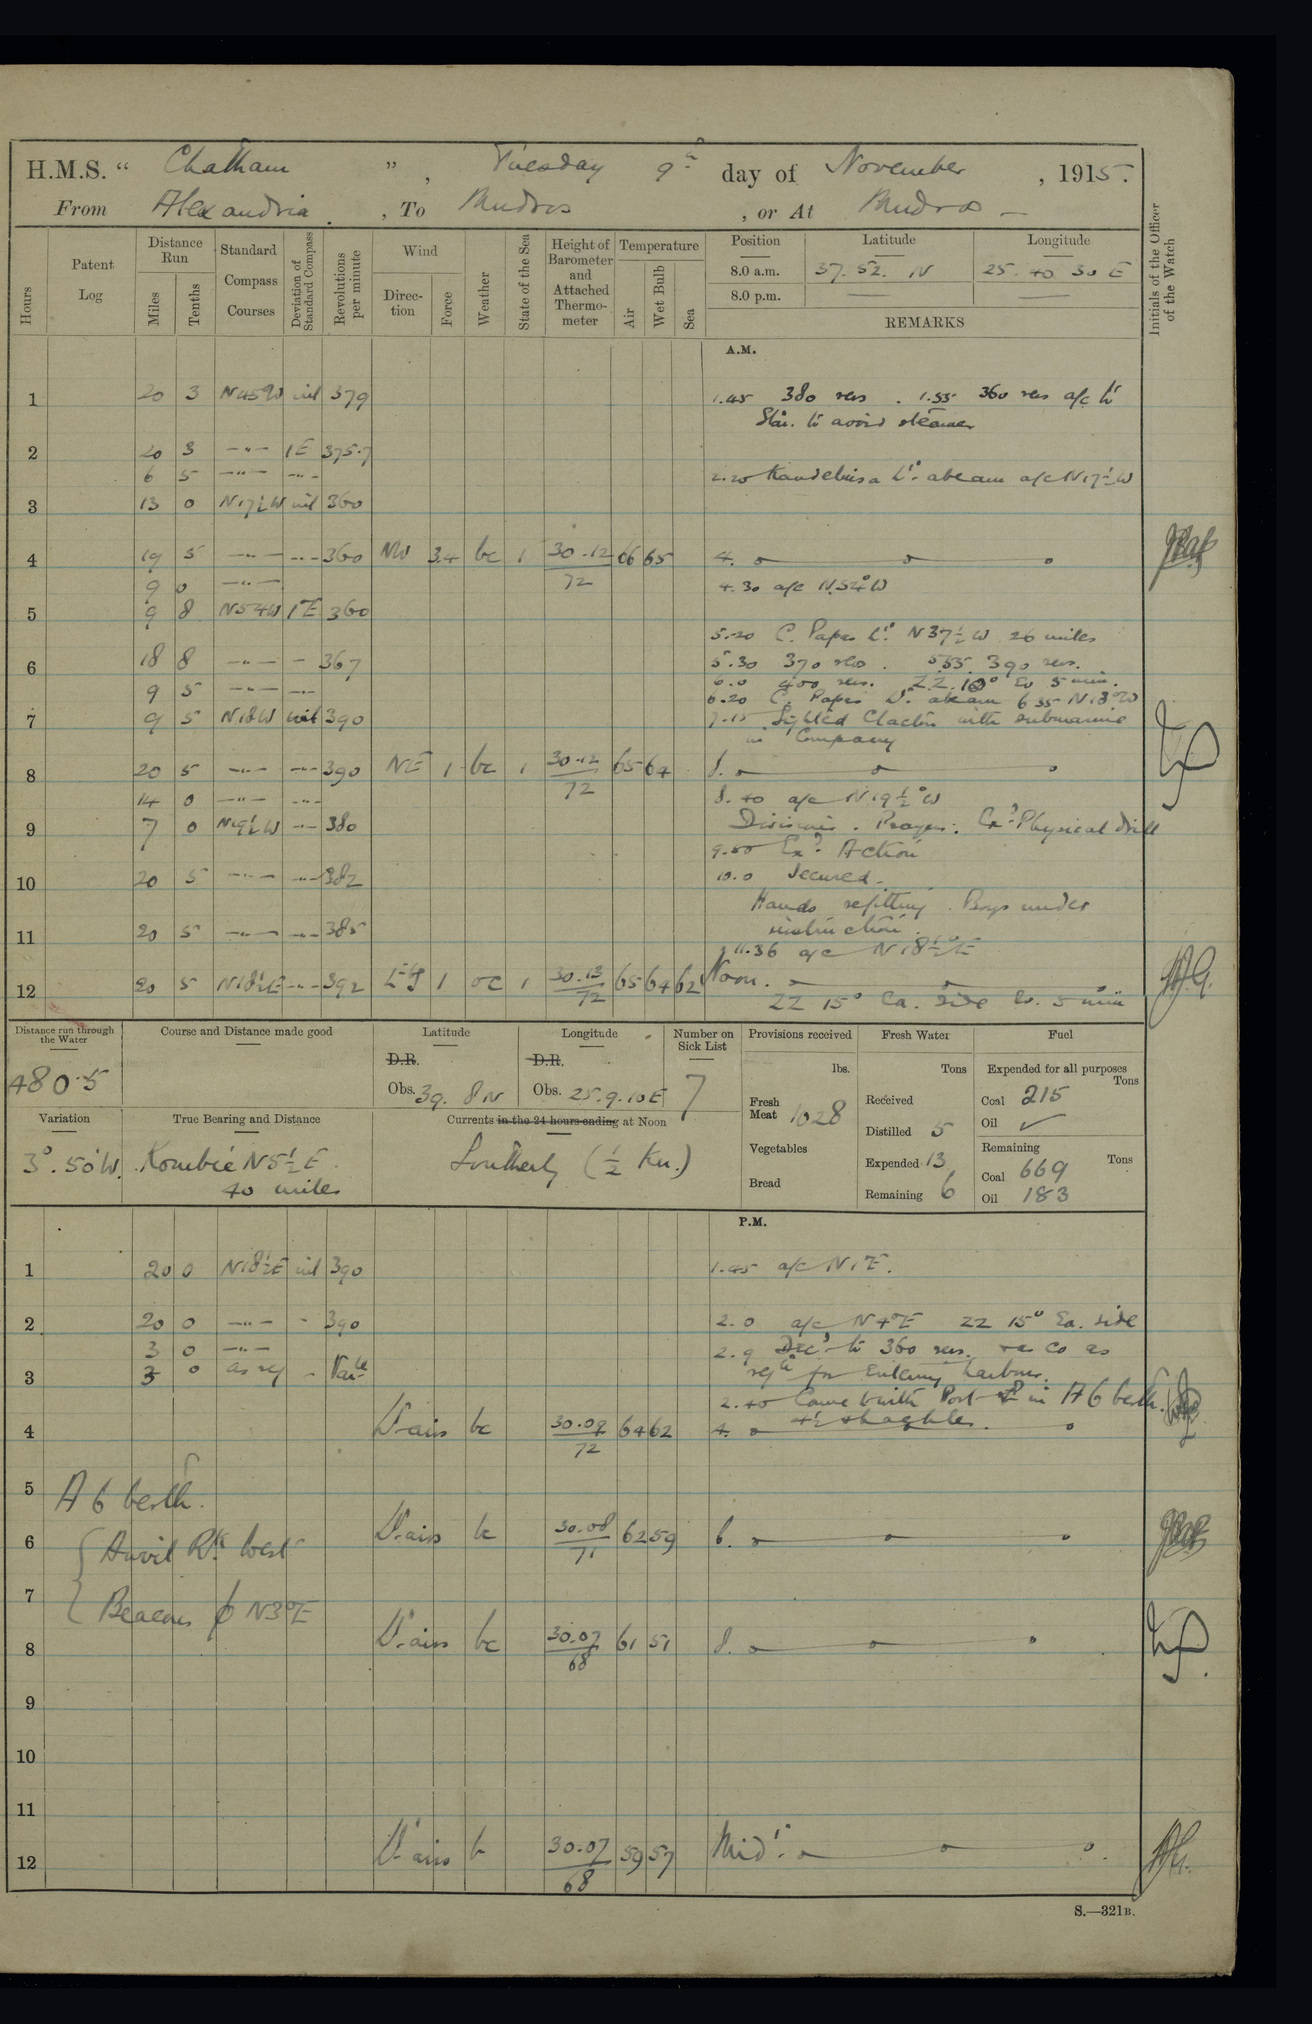 H.M.S. “ Chatham ” , Tuesday 9th day of November , 1915.
From Alexandria . , To Mudros , or At Mudros —
Hours
Patent Log
Distance Run
Miles
Tenths
Standard Compass Courses
Deviation of Standard Compass
Revolutions per minute
Wind
Direction
Force
Weather
State of the Sea
Height of Barometer and Attached Thermometer
Temperature
Air
Wet Bulb
Sea
Position
Latitude
Longitude
8.0 a.m. 37. 52. N 25. 40. 30 E
8.0 p.m. — —
REMARKS
Initials of the Officer of the Watch
A.M.
1 20 3 N45W nil 379 1.45 380 revs . 1.55 360 revs a/c to
Star. to avoid steamer
2 20 3 —"— 1E 375.7
6 5 —"— —"— 2.20 Kandeliusa Lt. abeam a/c N17½W
3 13 0 N17½W nil 360
4 19 5 —"— —"— 360 NW 3.4 bc 1 30.12 66 65 4.
72
9 0 —"— 4.30 a/c N54°W
5 9 8 N54W 1E 360
5.20 C. Papas Lt. N37½W 26 miles
6 18 8 —"— — 367 5.30 370 revs . 5.55. 390 revs.
6.0 400 revs. ZZ. 10° Ev 5 min.
9 5 —"— —"— 6.20 C. Papas Lt. abeam 6 35 N18°W
7 9 5 N18W nil 390 7.15 Sighted Clacton with submarine
in Company
8 20 5 —"— —"— 390 NE 1 bc 1 30.12 65 64 8.
72
14 0 —"— —"— 8.40 a/c N19½°W
9 7 0 N19½W —"— 380 Divisions. Prayers. Exd. Physical drill
9.50 Exd. Action
10 20 5 —"— —"— 382 10.0 Secured.
Hands refitting. Boys under
11 20 5 —"— —"— 385 instruction.
11.36 a/c N18½°E
12 20 5 N18½E —"— 392 1 oc 1 30.13 65 64 62 Noon.
72
ZZ 15° Ea. side Ev. 5 min
Distance run through the Water
480.5
Course and Distance made good
Latitude
D.R.
Obs. 39. 8 N
Longitude
D.R.
Obs. 25. 9. 10 E
Number on Sick List
7
Provisions received
lbs.
Fresh Meat 1028
Vegetables
Bread
Fresh Water
Tons
Received
Distilled 5
Expended 13
Remaining 6
Fuel
Expended for all purposes
Tons
Coal 215
Oil ✓
Remaining
Tons
Coal 669
Oil 183
Variation
3°. 50'W.
True Bearing and Distance
Kombie N5½E.
40 miles
Currents in the 24 hours ending at Noon
Southerly (½ Kn.)
P.M.
1 20 0 N18½E nil 390 1.45 a/c N1°E.
2 20 0 —"— - 390 2.0 a/c N4°E ZZ 15° Ea. side
3 0 —"— 2.9 Decd to 360 revs. & a Co as
3 3 0 as req - Varble reqte for Entering harbour.
2.40 Came to with Port in A 6 berth.
4½ shackles.
4 Lt. airs bc 30.09 64 62 4.
72
5 A 6 berth.
6 Anvil Rk. West Lt. airs bc 30.08 62 59 6.
71
7 Beacons ϕ N3°E
8 Lt. airs bc 30.07 61 51 8.
68
9
10
11
12 Lt. airs b 30.07 59 57 Midt.
68
S.—321B.